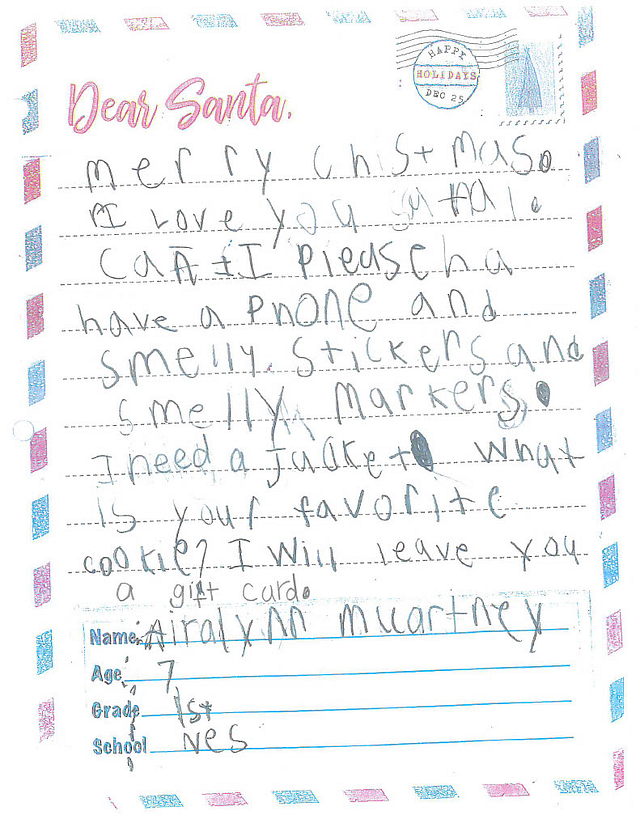 HAPPY
HOLIDAYS
DEC 25
Dear Santa,
merry Chistmas.
I Love you
Can I Please ha
have a Phone and
smelly. Stickers and
smelly Markers.
I need a Jacket What
is your favorite
cookie? I will leave you
a gift card.
Name Airalynn mccartney
Age 7
Grade 1st
School NES